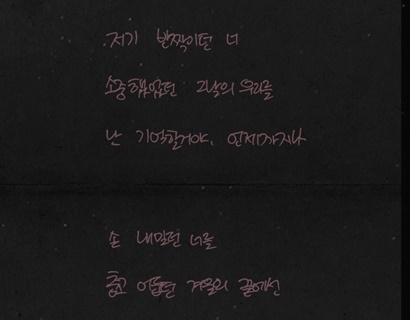 저기 반짝이던 너
소중했었던 그날의 우리를
난 기억할거야, 언제까지나
손 내밀던 너를
춥고 어둡던 겨울의 끝에선